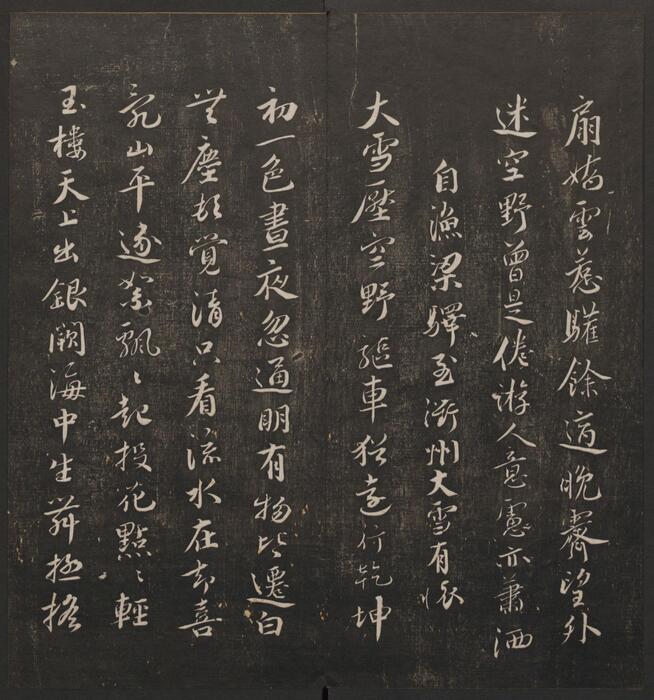 扇嬌雲惹驩餘適晚霽望外
迷空野曾是倦游人意慮亦蕭洒
自漁梁驛至衢州大雪有懷
大雪壓空野驅車猶遠行乾坤
初一色晝夜忽通明有物皆遷白
無塵頓覺清只看流水在却喜
亂山平逐絮飄〻起投花點〻輕
玉樓天上出銀闕海中生舞極摇